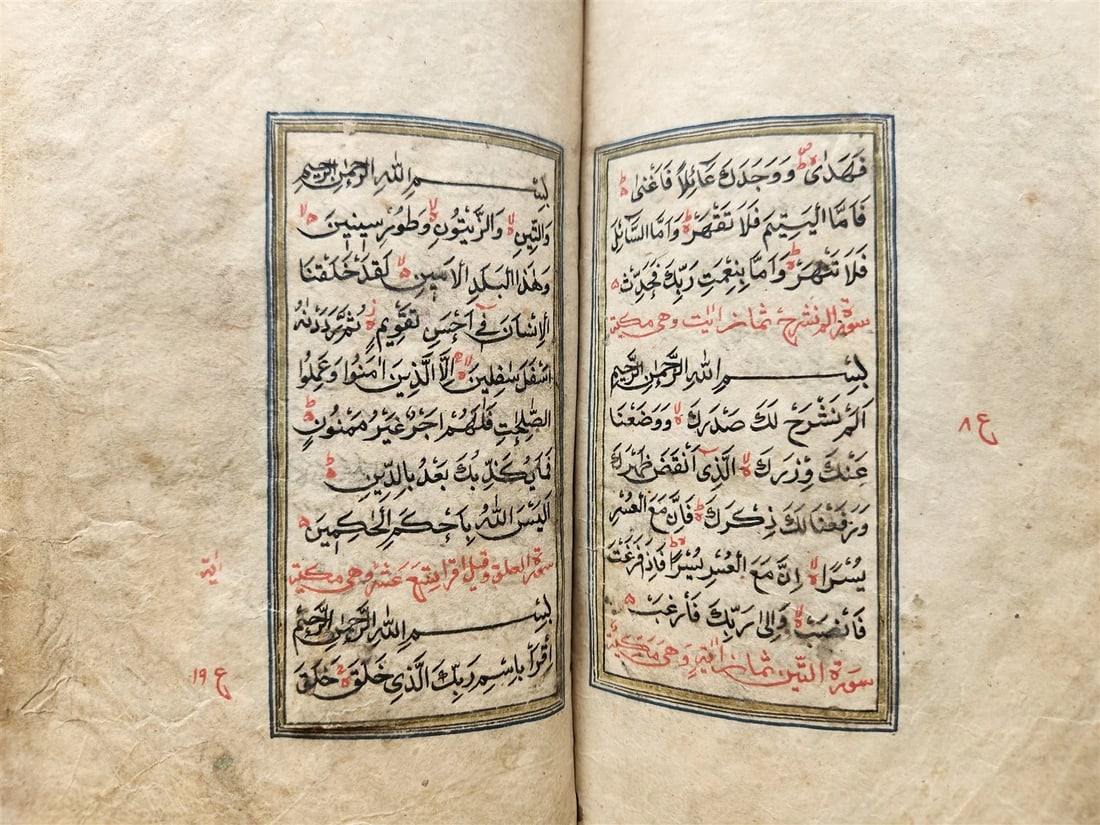 فَهَدٰى ط وَوَجَدَكَ عَائِلاً فَاَغْنٰى ط
فَاَمَّا الْيَتِيْمَ فَلَا تَقْهَرْ ط وَاَمَّا السَّآئِلَ
فَلَا تَنْهَرْ ط وَاَمَّا بِنِعْمَتِ رَبِّكَ فَحَدِّثْ
سورة الم نشرح ثمان اٰيات وهى مكية
بِسْمِ اللهِ الرَّحْمٰنِ الرَّحِيْمِ
اَلَمْ نَشْرَحْ لَكَ صَدْرَكَ لا وَوَضَعْنَا
عَنْكَ وِزْرَكَ لا الَّذِىْٓ اَنْقَضَ ظَهْرَكَ
وَرَفَعْنَا لَكَ ذِكْرَكَ ط فَاِنَّ مَعَ الْعُسْرِ
يُسْرًا لا اِنَّ مَعَ الْعُسْرِ يُسْرًا ط فَاِذَ فَرَغْتَ
فَانْصَبْ لا وَاِلٰى رَبِّكَ فَارْغَبْ
سورة التين ثمان اٰية وهى مكية
ع ٨
بِسْمِ اللهِ الرَّحْمٰنِ الرَّحِيْمِ
وَالتِّيْنِ لا وَالزَّيْتُوْنِ لا وَطُوْرِ سِيْنِيْنَ لا
وَهٰذَا الْبَلَدِ الْاَمِيْنِ لا لَقَدْ خَلَقْنَا
الْاِنْسَانَ فِىْٓ اَحْسَنِ تَقْوِيْمٍ ز ثُمَّ رَدَدْنٰهُ
اَسْفَلَ سٰفِلِيْنَ لا اِلَّا الَّذِيْنَ اٰمَنُوْا وَعَمِلُوا
الصّٰلِحٰتِ فَلَهُمْ اَجْرٌ غَيْرُ مَمْنُوْنٍ ط
فَمَا يُكَذِّبُكَ بَعْدُ بِالدِّيْنِ ط
اَلَيْسَ اللهُ بِاَحْكَمِ الْحٰكِمِيْنَ
سورة العلق وقيل اقرا تسع عشر وهى مكية
اٰية
بِسْمِ اللهِ الرَّحْمٰنِ الرَّحِيْمِ
اِقْرَاْ بِاسْمِ رَبِّكَ الَّذِىْ خَلَقَ خَلَقَ
ع ١٩